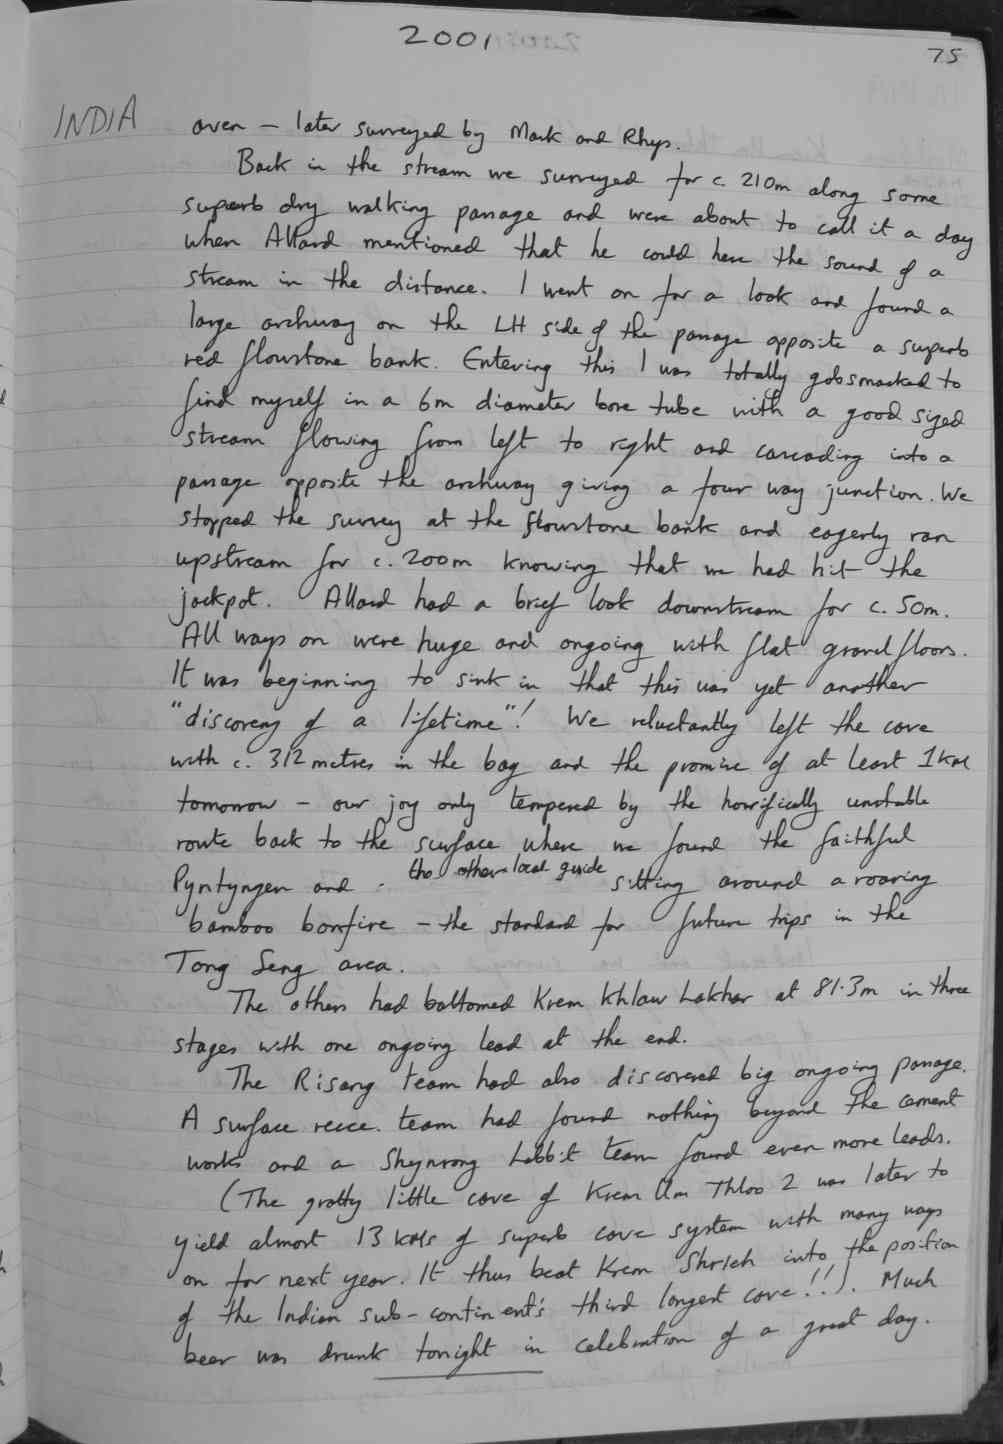 2001
75
INDIA
aven - later surveyed by Mark and Rhys.
Back in the stream we surveyed for c. 210m along some
superb dry walking passage and were about to call it a day
when Allard mentioned that he could here the sound of a
stream in the distance. I went on for a look and found a
large archway on the LH side of the passage opposite a superb
red flowstone bank. Entering this I was totally gobsmacked to
find myself in a 6m diameter bore tube with a good sized
stream flowing from left to right and cascading into a
passage opposite the archway giving a four way junction. We
stopped the survey at the flowstone bank and eagerly ran
upstream for c. 200m knowing that we had hit the
jackpot. Allard had a brief look downstream for c. 50m.
All ways on were huge and ongoing with flat gravel floors.
It was beginning to sink in that this was yet another
"discovery of a lifetime"! We reluctantly left the cave
with c. 312 metres in the bag and the promise of at least 1km
tomorrow - our joy only tempered by the horrifically unstable
route back to the surface where we found the faithful
Pyntyngen and the other local guide sitting around a roaring
bamboo bonfire - the standard for future trips in the
Tong Seng area.
The others had bottomed Krem Khlaw Lakhar at 81.3m in three
stages with one ongoing lead at the end.
The Risang team had also discovered big ongoing passage.
A surface recce. team had found nothing beyond the cement
works and a Shynrong Labbit team found even more leads.
(The grotty little cave of Krem Um Thloo 2 was later to
yield almost 13 kms of superb cave system with many ways
on for next year. It thus beat Krem Shrieh into the position
of the Indian sub-continent's third longest cave!!). Much
beer was drunk tonight in celebration of a great day.